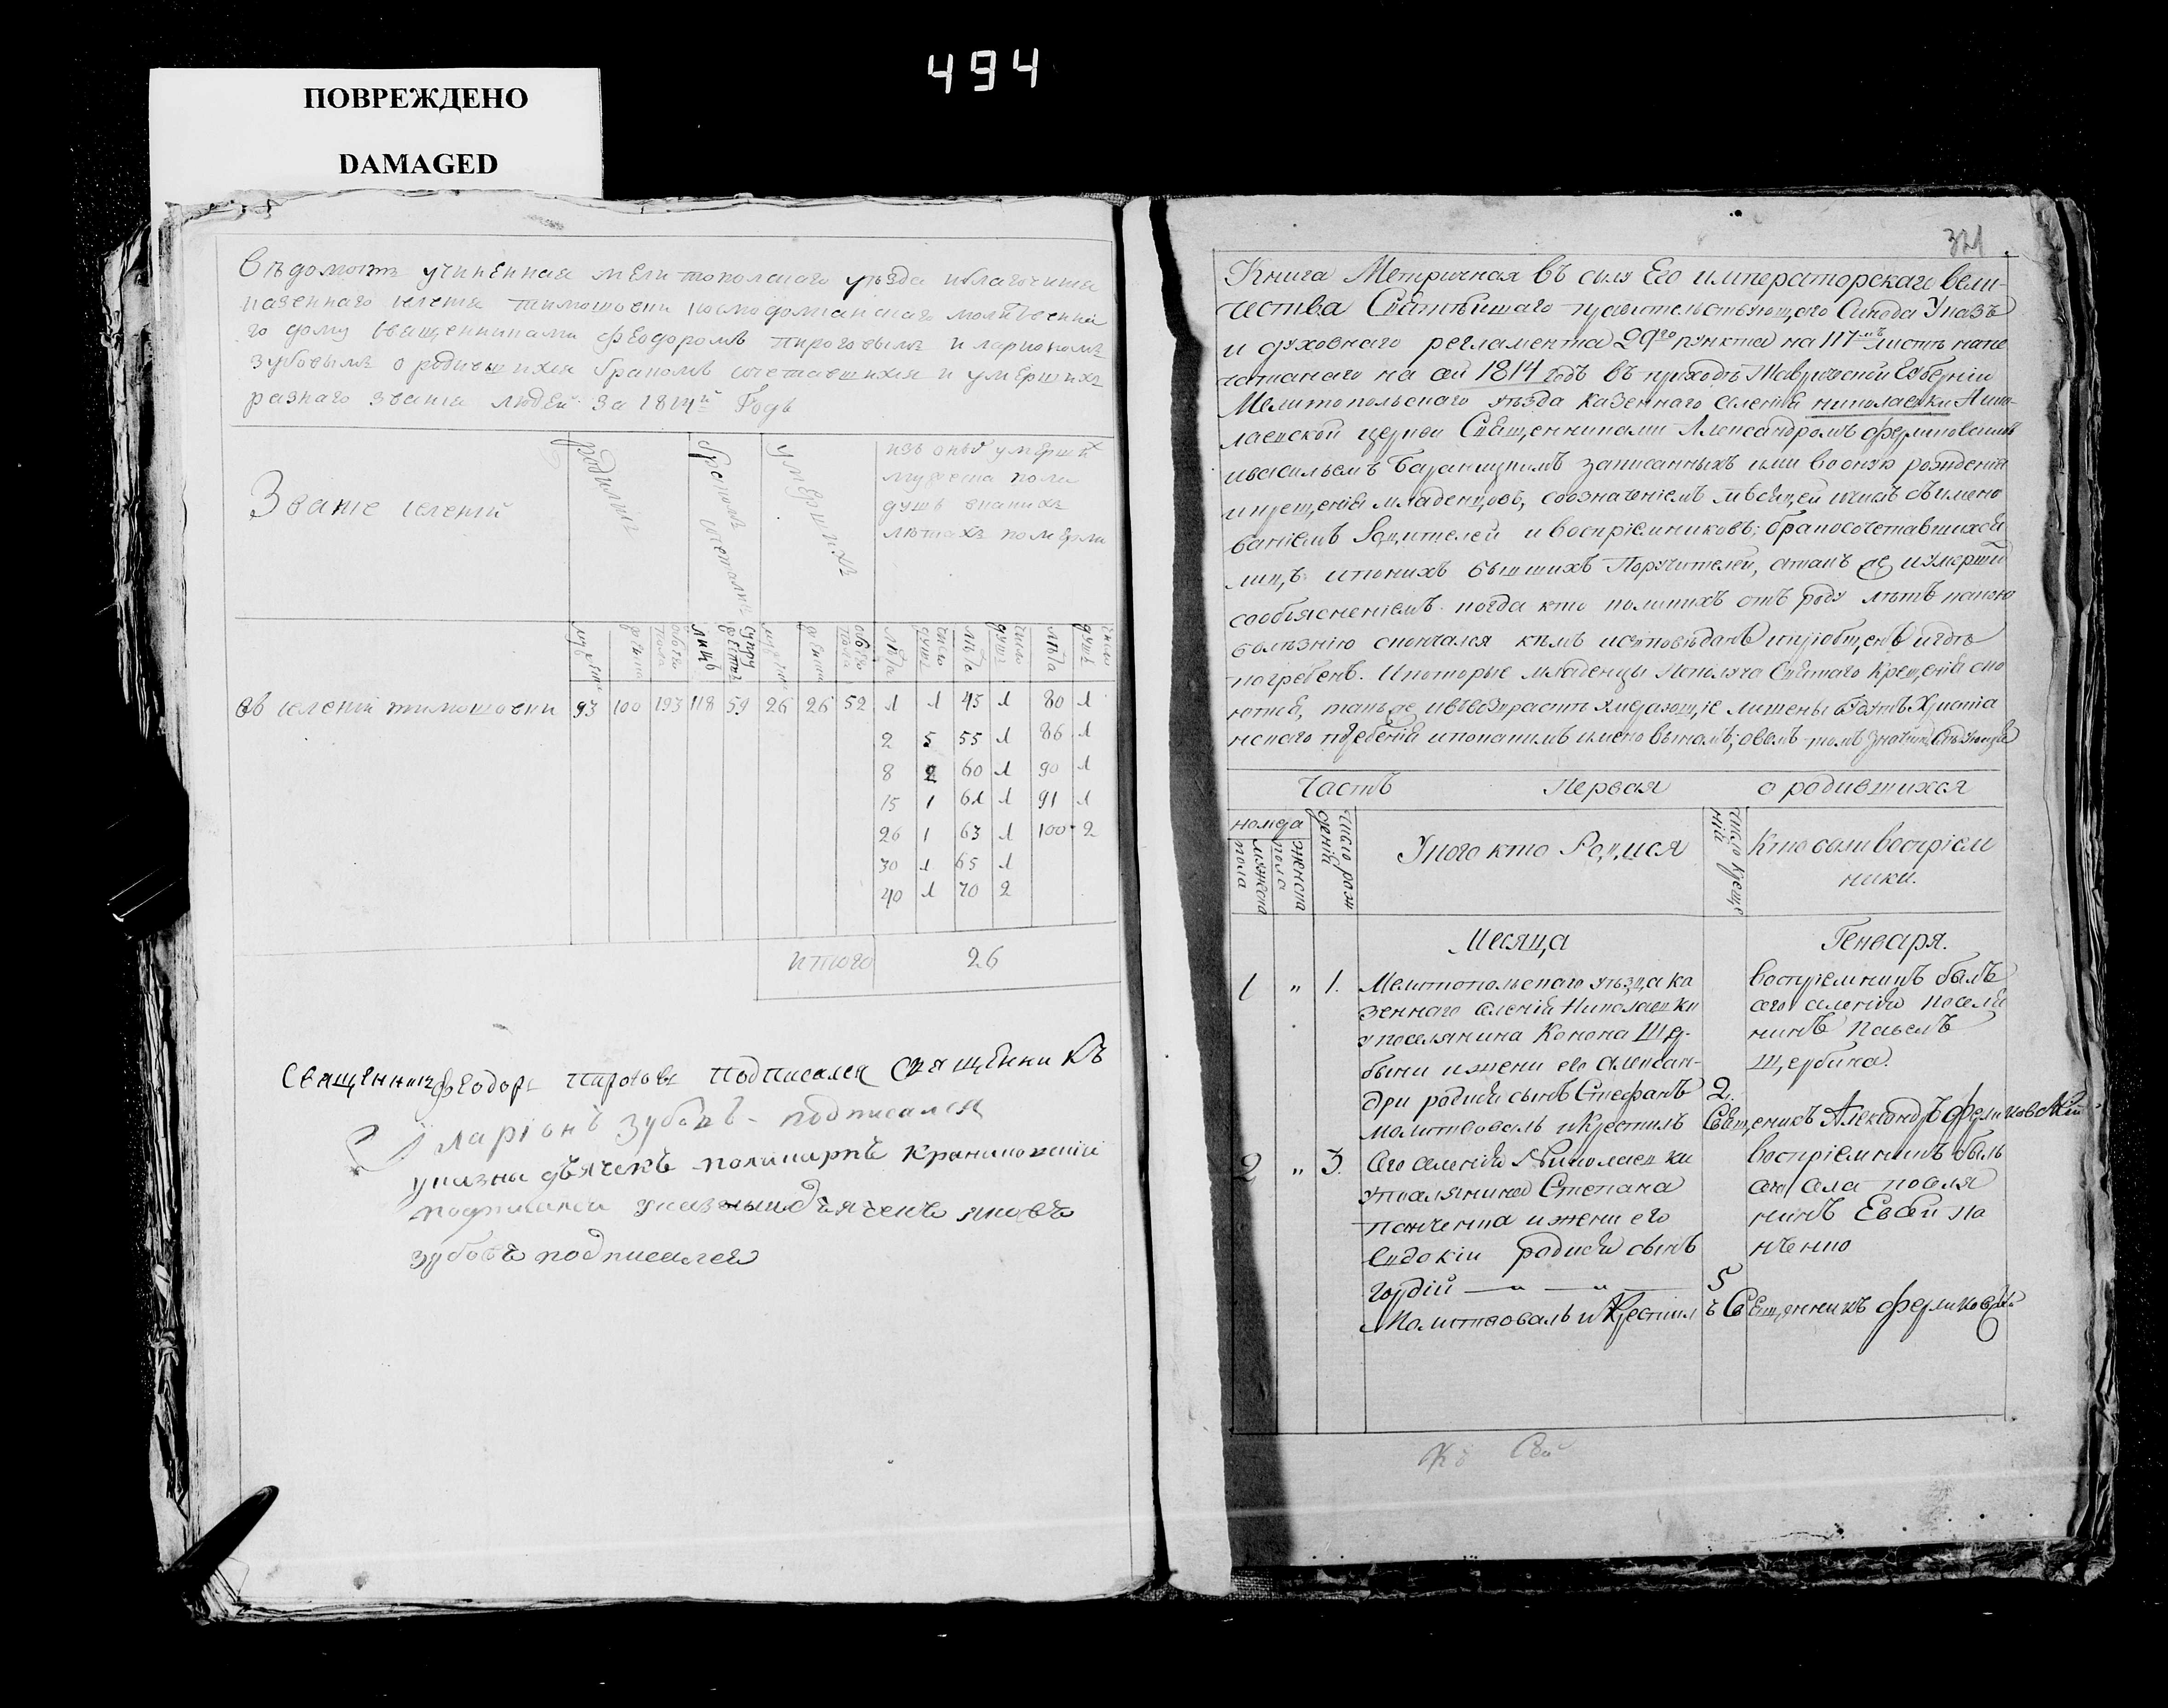 494
ПОВРЕЖДЕНО
DAMAGED
Вѣдомость учиненная мелитополскаго уѣзда
казеннаго селения тимошовки космодомианскаго молитвенна
го дому священниками феодоромъ пироговымъ иларионом
зубовымъ о родившихся бракомъ сочетавшихся и умершихъ
разнаго звания людей за 1814й Годъ
Звание селений
родились
бракомъ сочетались
умершихъ
изъ оныхъ умерших
мужеска пола
душъ в каких
лѣтахъ померли
мужеска
женска
обоего пола
лицъ
супружествъ
мужеска
женска
обоего пола
лѣта
число душъ
лѣта
число душъ
лѣта
число душъ
въ селении тимошовки 93 100 193 118 59 26 26 52 1 1 45 1 80 1
2 5 55 1 86 1
8 2 60 1 90 1
15 1 61 1 91 1
26 1 63 1 100 2
30 1 65 1
40 1 70 2
итого 26
Священникъ феодоръ пироговъ подписался священникъ
Иларіонъ зубовъ подписался
указны дьячекъ поликарпъ
подписался указныи дьячекъ яковъ
зубовъ подписался
321
Книга Метричная въ силу Его императорскаго вели-
чества Святѣйшаго правительствующего Синода Указа
и духовнаго регламента 29го пункта на 117мъ листѣ напе
чатанаго на сей 1814 годъ въ приходѣ Таврической Губерніи
Мелитопольскаго уѣзда казеннаго селенія николаевки Нико-
лаевской церкви Священниками Александромъ
и васильемъ записанныхъ ими во оную рожденія
и крещенія младенцовъ, со означеніемъ мѣсяцей и чиселъ съ имено
ваніемъ Родителей и воспріемниковъ; бракосочетавшихся
лицъ и по нихъ бывшихъ Поручителей, а такъ же и умерши
со объясненіемъ когда кто коликихъ отъ роду лѣтъ какою
болѣзнію скончался кѣмъ исповѣданъ и пріобщенъ и гдѣ
погребенъ. И которые младенцы не получа Святаго Крещенія ско
Часть Первая о родившихся
номера
мужеска пола
женска пола
число рож деній
У кого кто Родился
число креще ній
Кто были воспріем
ники.
Месяца Генваря.
1 „ 1. Мелитопольскаго уѣзда ка
зеннаго селенія Николаевки
у поселянина Конона Щер-
быни и жени его Алексан-
дри родися сынъ Стефанъ 2.
молитвовалъ и Крестилъ Священикъ Александръ
воспріемникъ былъ
сего селенія поселя
нинъ Павелъ
Щербина.
2 „ 3. Сего селенія Николаевки
у поселянина Степана
панченка и жени его
Евдокіи родися сынъ
гордій — „ — „ — 5
Молитвовалъ и Крестилъ Священникъ
воспріемникъ былъ
сего села поселя
нинъ Евсей па
нченко